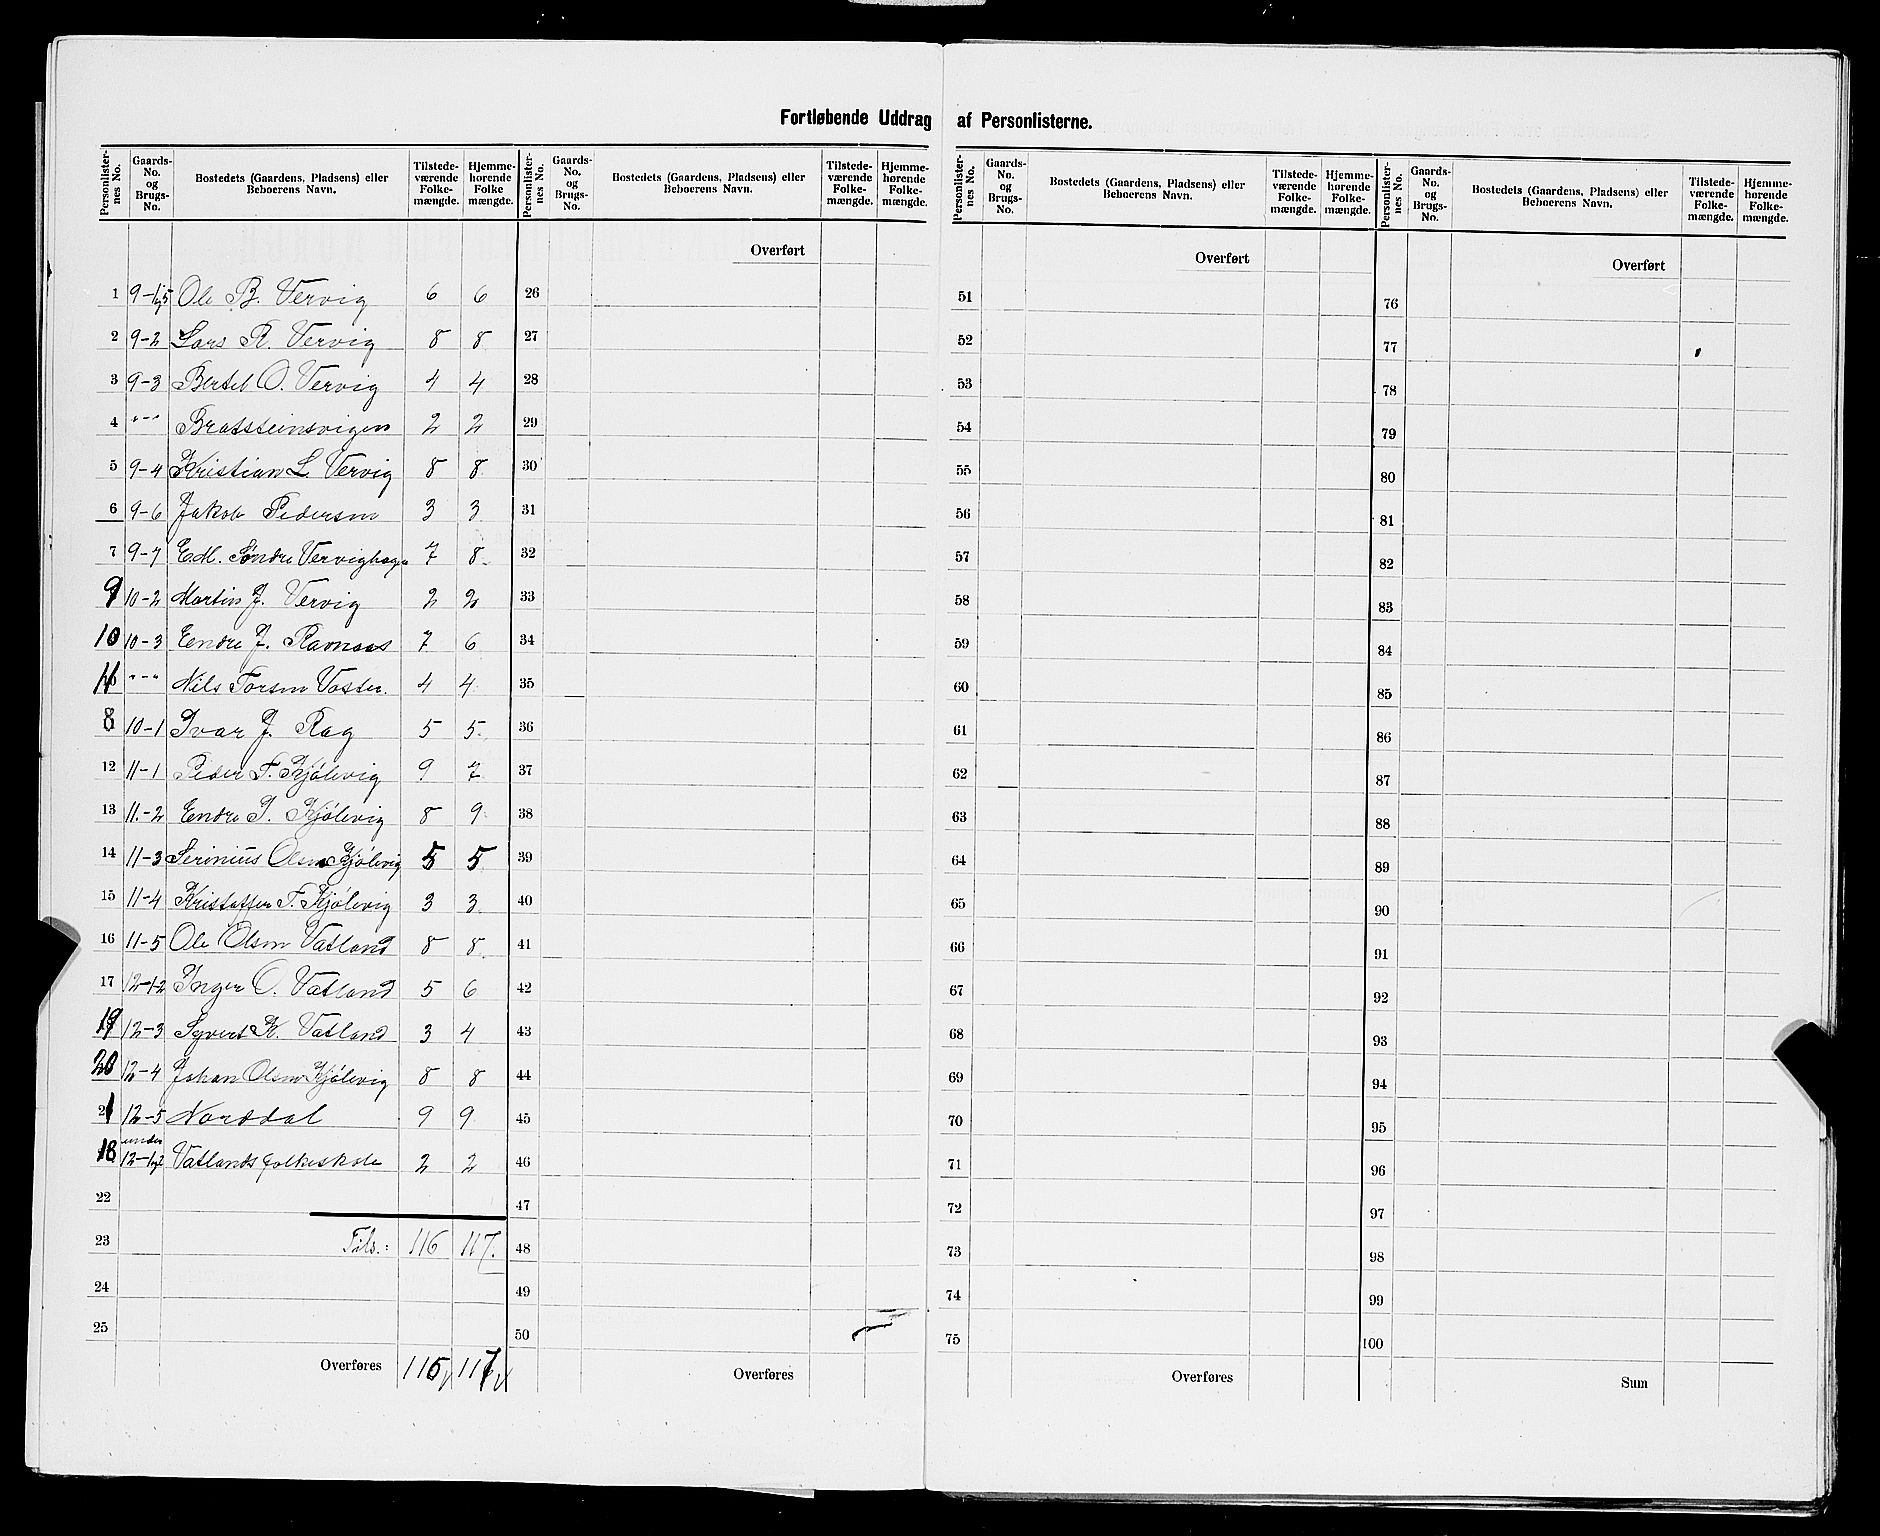 Fortløbende Uddrag af Personlisterne.
Personlister-nes No. | Gaards-No. og Brugs-No. | Bostedets (Gaardens, Pladsens) eller Beboerens Navn. | Tilstede-værende Folke-mængde. | Hjemme-hørende Folke mængde.
1 9-1,5 Ole B. Vervig 6 6
2 9-2 Lars R. Vervig 8 8
3 9-3 Bertel O. Vervig 4 4
4 "-" Bratsteinsvigen 2 2
5 9-4 Kristian L. Vervig 8 8
6 9-6 Jakob Pedersen 3 3
7 9-7 E.M. Søndre Vervighagen 7 8
9 10-2 Martin J. Vervig 2 2
10 10-3 Endre J. Ramsos 7 6
11 "-" Nils Torsen 4 4
8 10-1 Ivar J. Rag 5 5
12 11-1 Peder T. Kjølevig 9 7
13 11-2 Endre P. Kjølevig 8 9
14 11-3 Serinius Olsen Kjølevig 5 5
15 11-4 Kristoffer T. Kjølevig 3 3
16 11-5 Ole Olsen Vatland 8 8
17 12-1,2 Inger O. Vatland 5 6
19 12-3 Syvert K. Vatland 3 4
20 12-4 Johan Olsen Kjølevig 8 8
21 12-5 Norddal 9 9
18 under 12-1,2 Vatlands folkeskole 2 2
22
23 Tils.: 116 117.
24
25
Overføres 116 117
Personlister-nes No. | Gaards-No. og Brugs-No. | Bostedets (Gaardens, Pladsens) eller Beboerens Navn. | Tilstede-værende Folke-mængde. | Hjemme-hørende Folke-mængde.
Overført
26
27
28
29
30
31
32
33
34
35
36
37
38
39
40
41
42
43
44
45
46
47
48
49
50
Overføres
Personlister-nes No. | Gaards-No. og Brugs-No. | Bostedets (Gaardens, Pladsens) eller Beboerens Navn. | Tilstede-værende Folke-mængde. | Hjemme-hørende Folke-mængde.
Overført
51
52
53
54
55
56
57
58
59
60
61
62
63
64
65
66
67
68
69
70
71
72
73
74
75
Overføres
Personlister-nes No. | Gaards-No. og Brugs-No. | Bostedets (Gaardens, Pladsens) eller Beboerens Navn. | Tilstede-værende Folke-mængde. | Hjemme-hørende Folke-mængde.
Overført
76
77
78
79
80
81
82
83
84
85
86
87
88
89
90
91
92
93
94
95
96
97
98
99
100
Sum